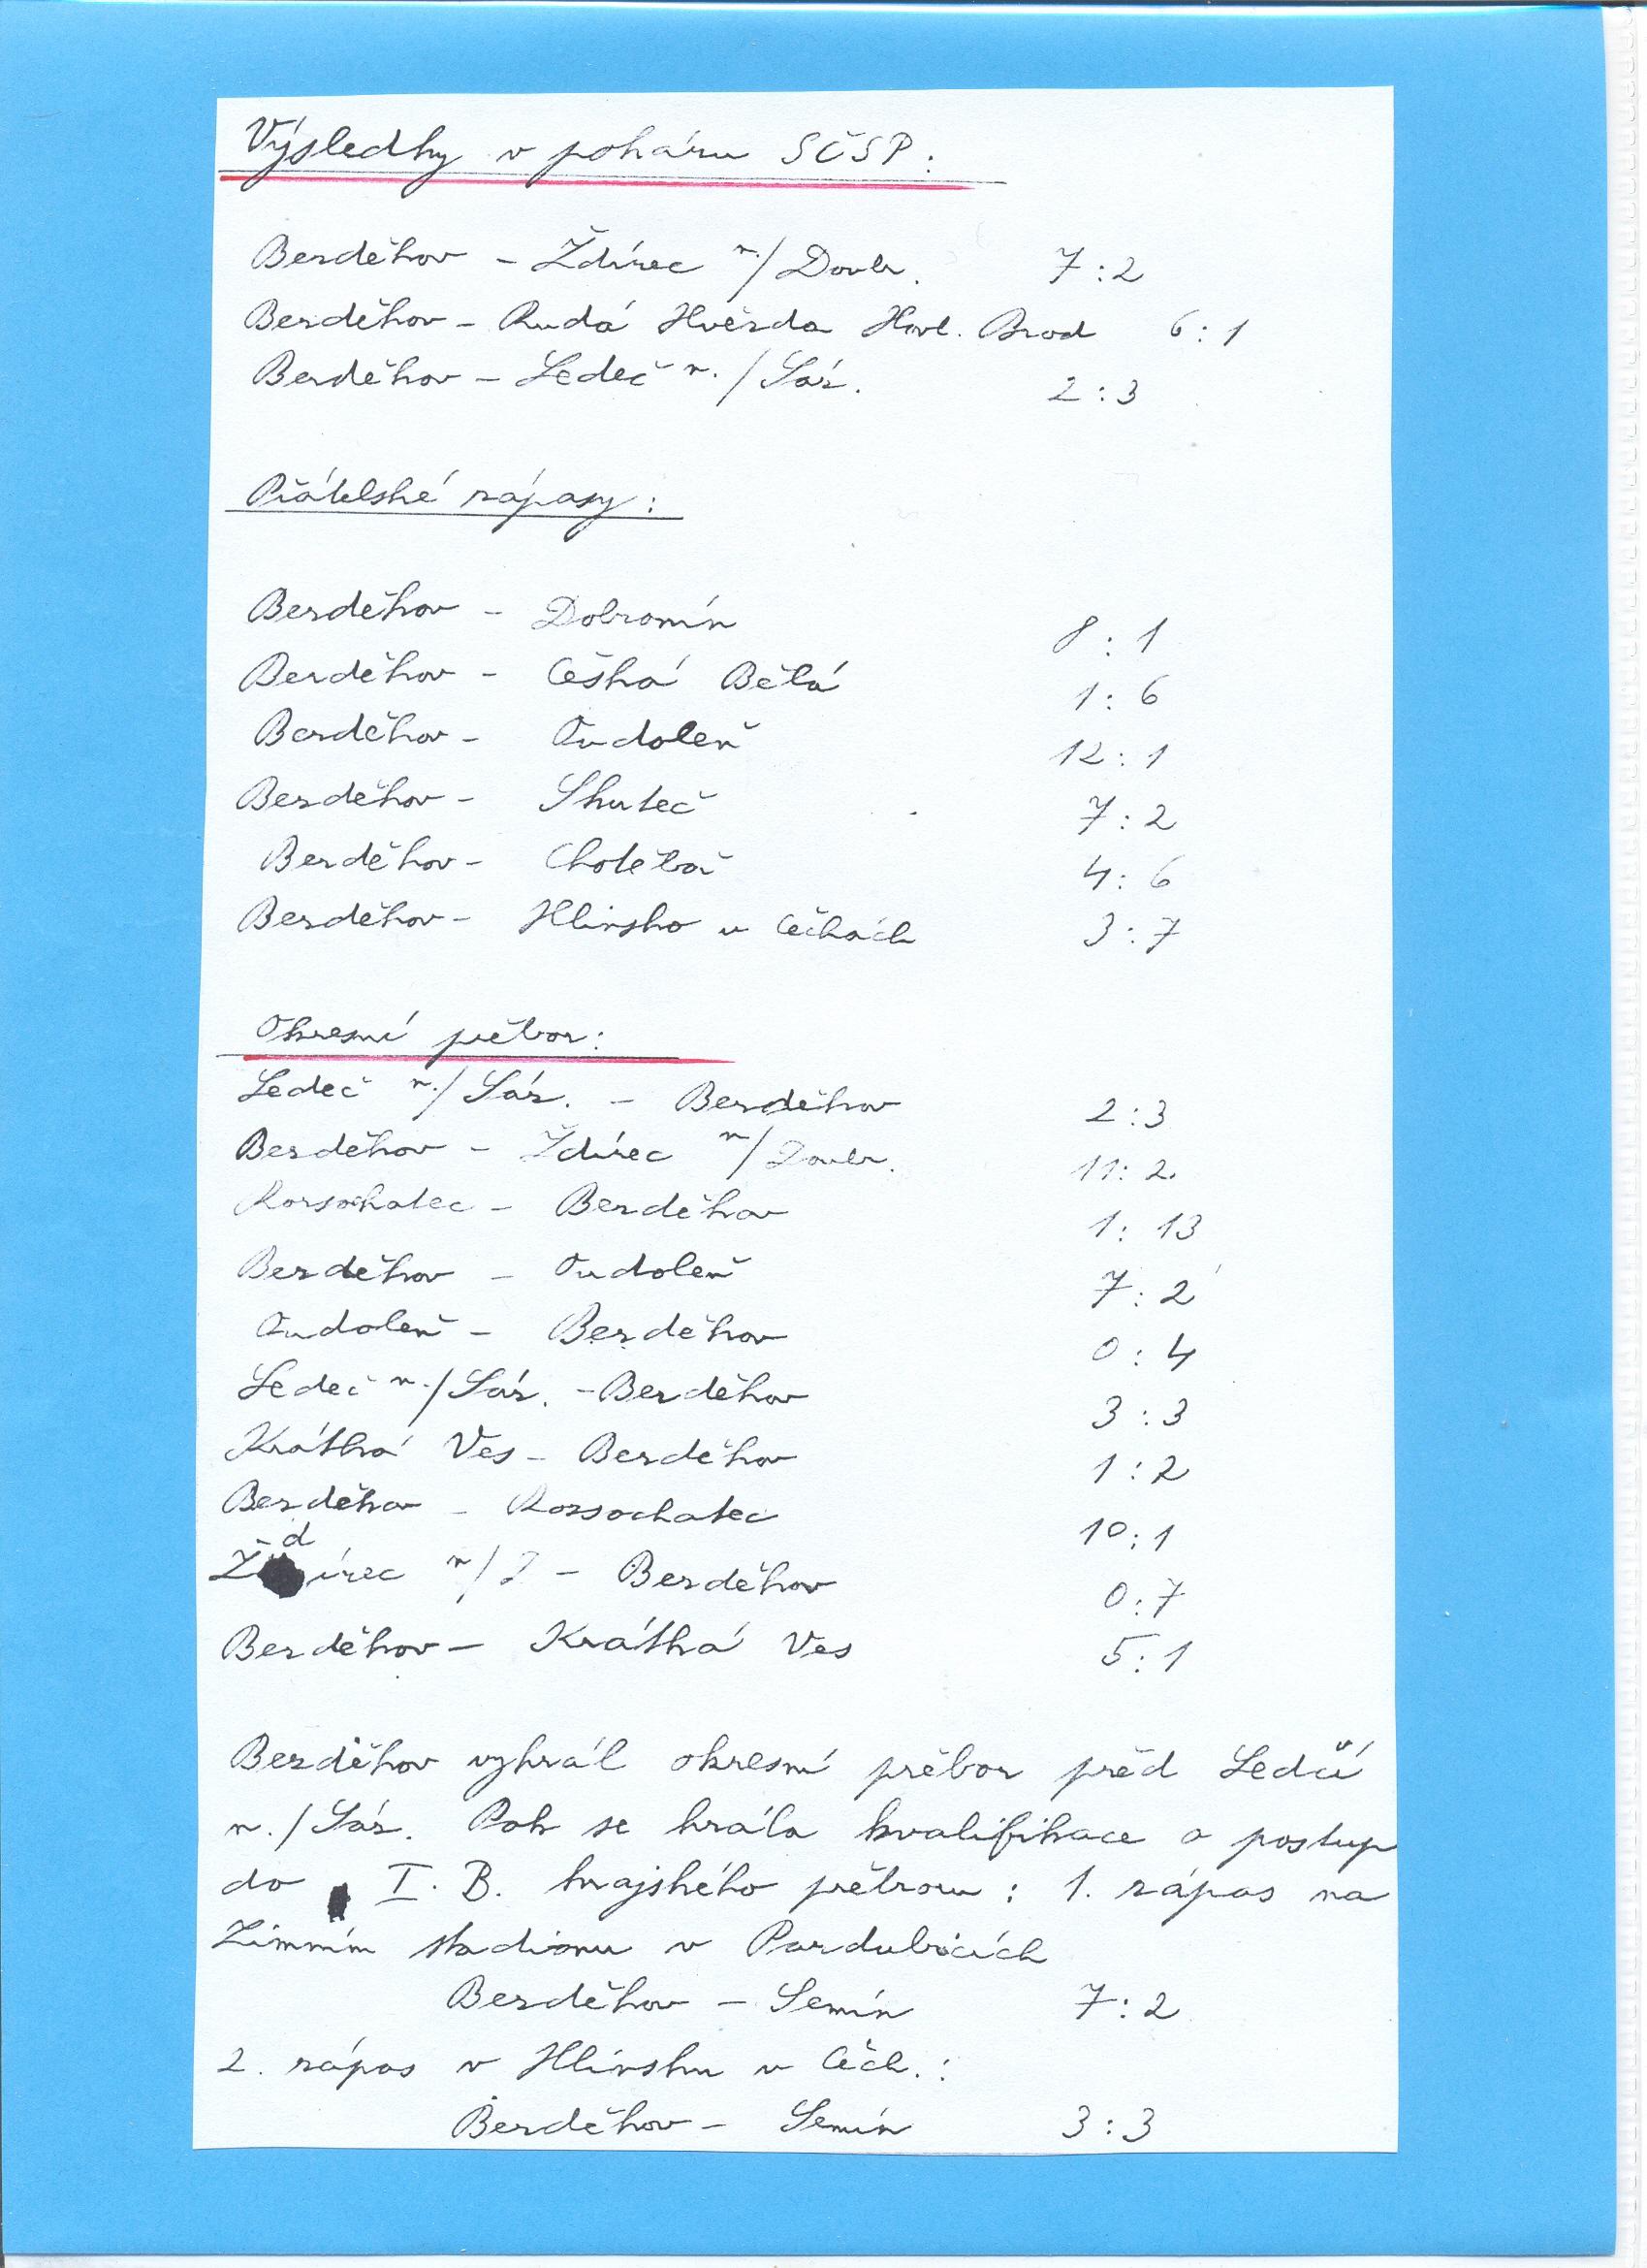 Výsledky v poháru SČSP:
Bezděkov - Ždírec n./Doubr. 7:2
Bezděkov - Rudá Hvězda Havl. Brod 6:1
Bezděkov - Ledeč n./Sáz. 2:3
Přátelské zápasy:
Bezděkov - Dobronín 8:1
Bezděkov - Česká Bělá 1:6
Bezděkov - Oudoleň 12:1
Bezděkov - Skuteč 7:2
Bezděkov - Chotěboř 4:6
Bezděkov - Hlinsko v Čechách 3:7
Okresní přebor:
Ledeč n./Sáz. - Bezděkov 2:3
Bezděkov - Ždírec n/Doubr. 11:2
Rozsochatec - Bezděkov 1:13
Bezděkov - Oudoleň 7:2
Oudoleň - Bezděkov 0:4
Ledeč n./Sáz. - Bezděkov 3:3
Krátká Ves - Bezděkov 1:2
Bezděkov - Rozsochatec 10:1
Ždírec n/D - Bezděkov 0:7
Bezděkov - Krátká Ves 5:1
Bezděkov vyhrál okresní přebor před Ledčí
n./Sáz. Pak se hrála kvalifikace o postup
do I. B. krajského přeboru: 1. zápas na
Zimním stadionu v Pardubicích
Bezděkov - Semín 7:2
2. zápas v Hlinsku v Čech.:
Bezděkov - Semín 3:3